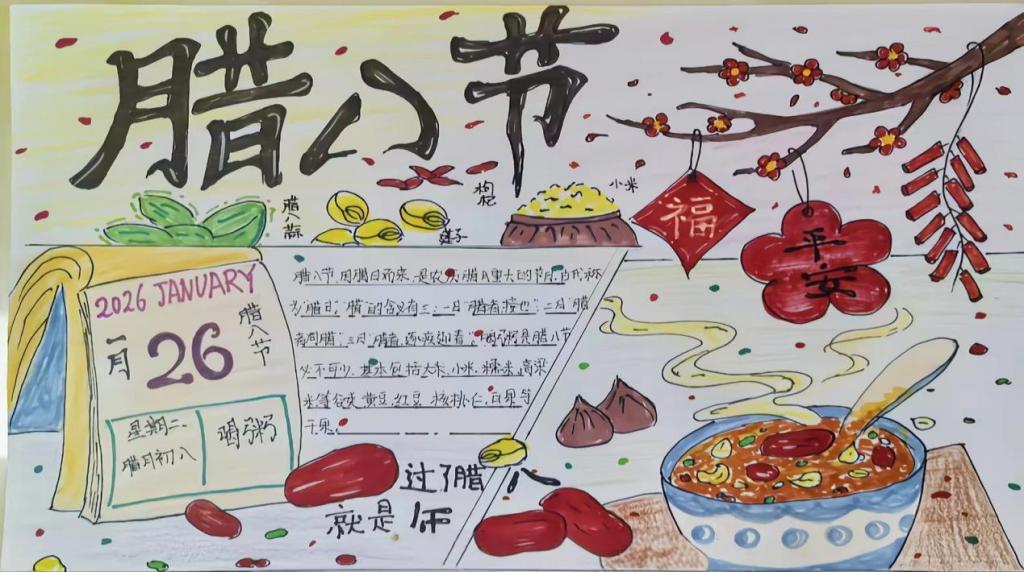 腊八节
腊八蒜
莲子
枸杞
小米
福
平安
2026 JANUARY
一月
26
腊八节
星期二
腊月初八
喝粥
腊八节,因腊日而来,是农历腊月重大的节日,古代称
为"腊日","腊"的含义有三:一曰"腊者,接也";二曰"腊
者同猎";三曰"腊者,逐疫迎春"。喝粥是腊八节
必不可少,基本包括大米、小米、糯米、高粱
米等谷类,黄豆、红豆、核桃仁、百果等
干果。
过了腊八
就是年